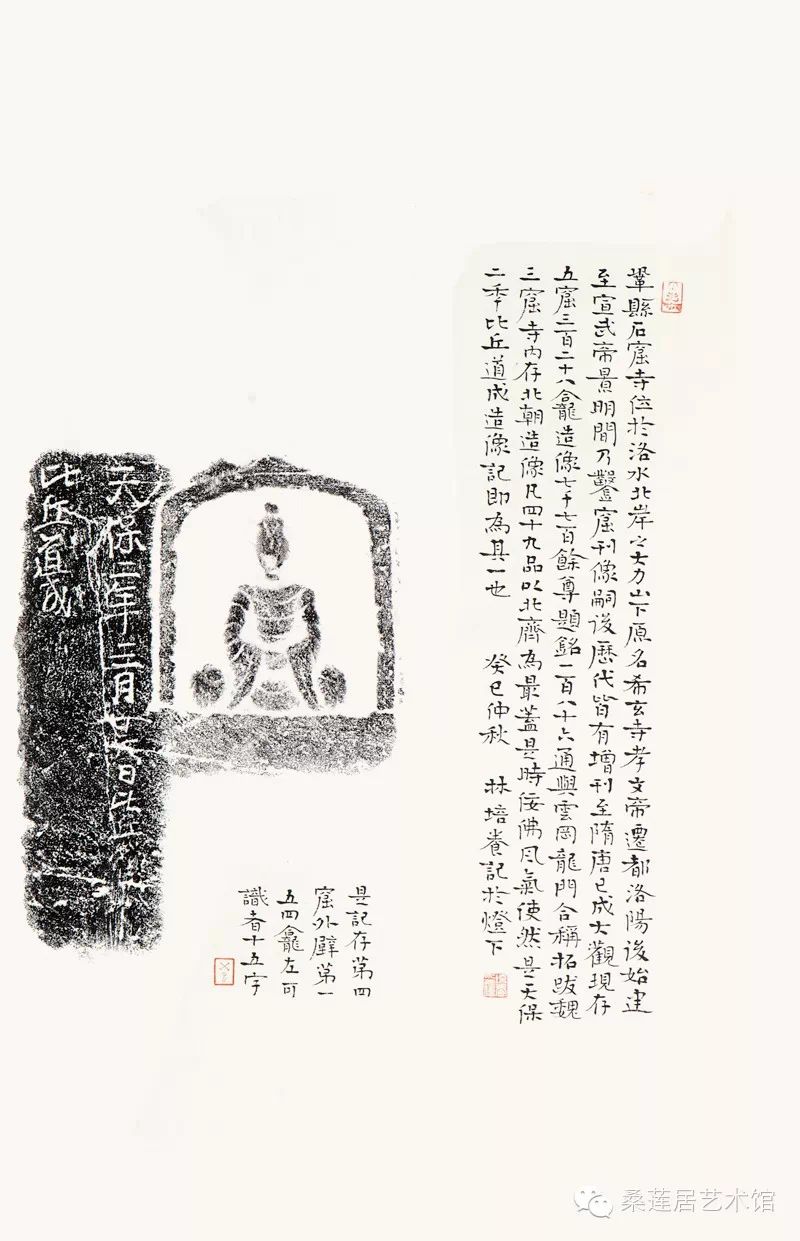 鞏縣石窟寺位於洛水北岸之大力山下原名希玄寺孝文帝遷都洛陽後始建
至宣武帝景明間乃鑿窟刊像嗣後歷代皆有增刊至隋唐已成大觀現存
五窟三百二十八龕造像七千七百餘尊題銘一百八十六通與雲岡龍門合稱拓跋魏
三窟寺內存北朝造像凡四十九品以北齊為最蓋是時佞佛風氣使然是天保
二季比丘道成造像記即為其一也 癸巳仲秋 林培養記於燈下
是記存第四
窟外壁第一
五四龕左可
識者十五字
天保二年三月廿日比丘
比丘道成
桑莲居艺术馆